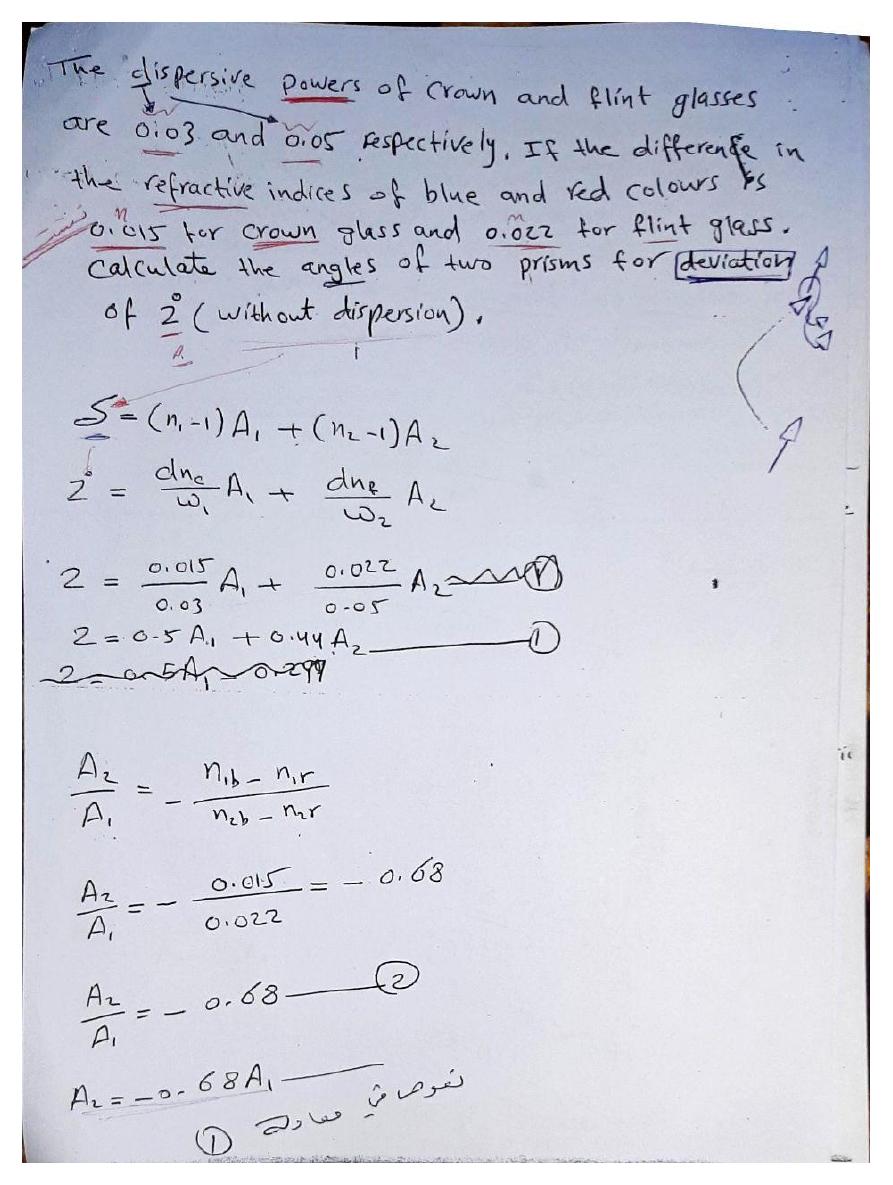 The dispersive powers of crown and flint glasses
are 0.03 and 0.05 respectively. If the difference in
the refractive indices of blue and red colours is
0.015 for crown glass and 0.022 for flint glass.
Calculate the angles of two prisms for deviation
of 2° (without dispersion).
δ = (n₁-1)A₁ + (n₂-1)A₂
2° = dnc/ω₁ A₁ + dnf/ω₂ A₂
2 = 0.015/0.03 A₁ + 0.022/0.05 A₂
2 = 0.5 A₁ + 0.44 A₂ ①
A₂/A₁ = - n₁b - n₁r / n₂b - n₂r
A₂/A₁ = - 0.015/0.022 = - 0.68
A₂/A₁ = - 0.68 ②
A₂ = -0.68 A₁ نعوض في
معادلة ①